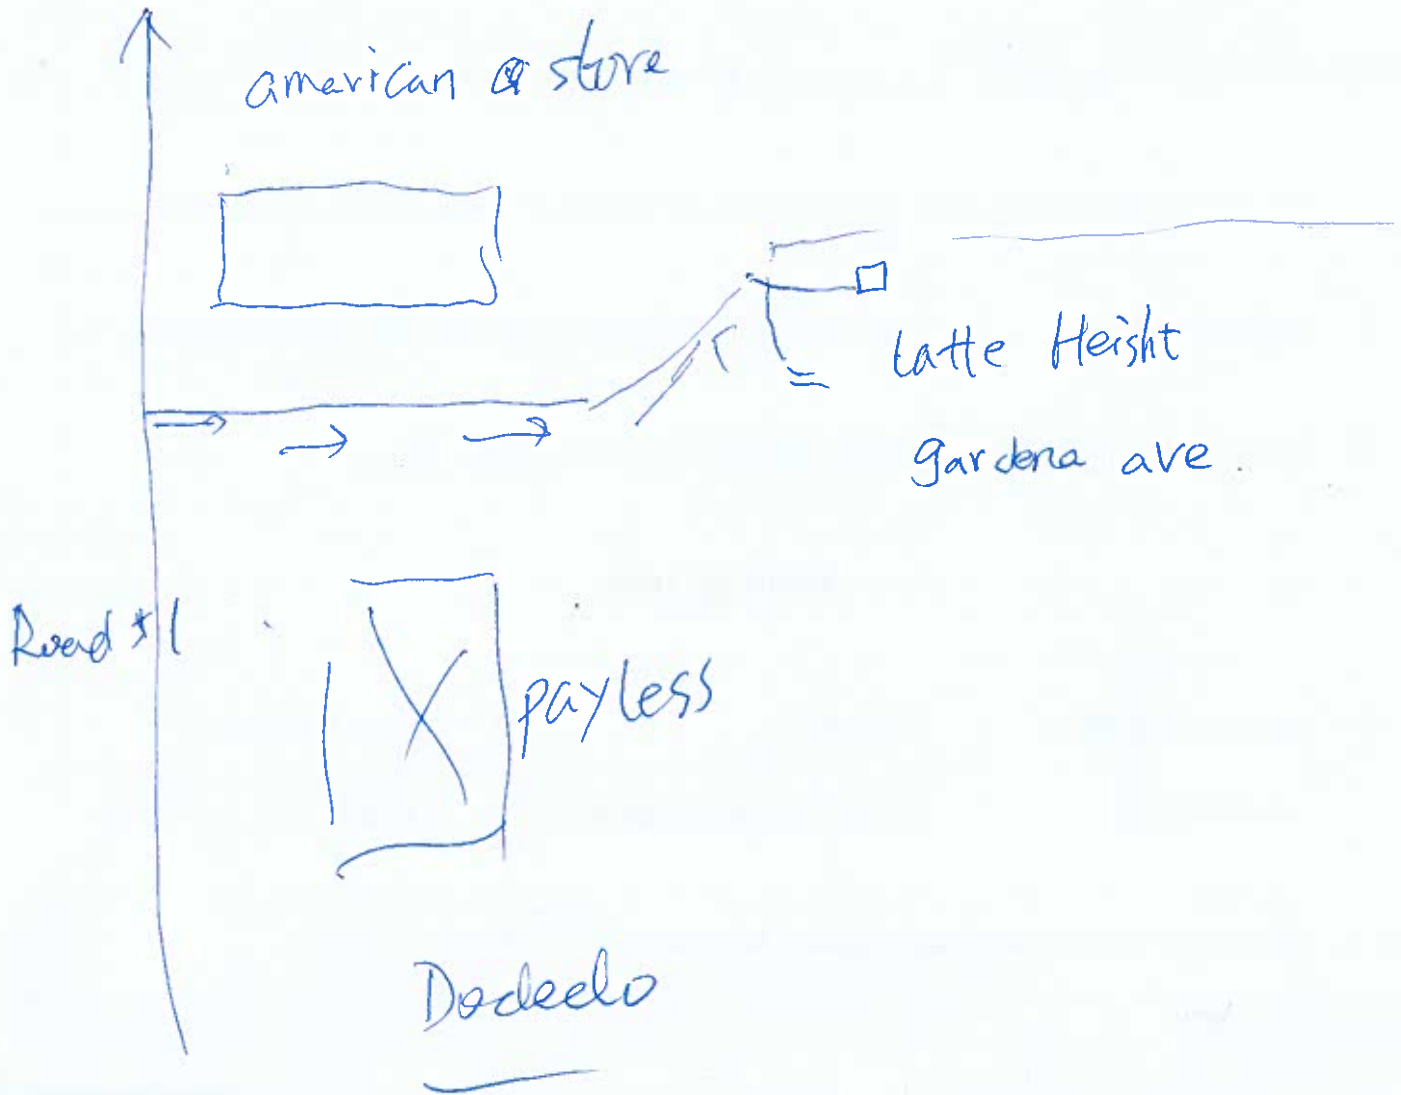 american store
Latte Height
gardena ave.
Road #1
payless
Dededo